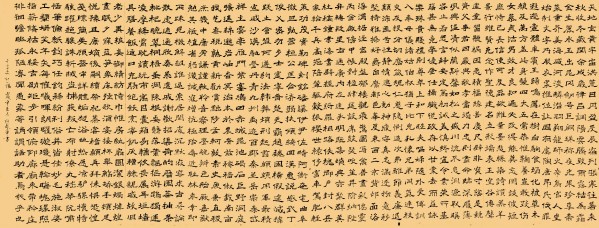 天地玄黃宇宙洪荒日月盈昃辰宿列張寒來暑往
秋收冬藏閏餘成歲律呂調陽雲騰致雨露結為霜
金生麗水玉出崑岡劍號巨闕珠稱夜光果珍李柰
菜重芥薑海鹹河淡鱗潛羽翔龍師火帝鳥官人皇
始制文字乃服衣裳推位讓國有虞陶唐弔民伐罪
周發殷湯坐朝問道垂拱平章愛育黎首臣伏戎羌
遐邇壹體率賓歸王鳴鳳在樹白駒食場化被草木
賴及萬方蓋此身髮四大五常恭惟鞠養豈敢毀傷
女慕貞潔男效才良知過必改得能莫忘罔談彼短
靡恃己長信使可覆器欲難量墨悲絲染詩讚羔羊
景行維賢克念作聖德建名立形端表正空谷傳聲
虛堂習聽禍因惡積福緣善慶尺璧非寶寸陰是競
資父事君曰嚴與敬孝當竭力忠則盡命臨深履薄
夙興溫凊似蘭斯馨如松之盛川流不息淵澄取映
容止若思言辭安定篤初誠美慎終宜令榮業所基
籍甚無竟學優登仕攝職從政存以甘棠去而益詠
樂殊貴賤禮別尊卑上和下睦夫唱婦隨外受傅訓
入奉母儀諸姑伯叔猶子比兒孔懷兄弟同氣連枝
交友投分切磨箴規仁慈隱惻造次弗離節義廉退
顛沛匪虧性靜情逸心動神疲守真志滿逐物意移
堅持雅操好爵自縻都邑華夏東西二京背邙面洛
浮渭據涇宮殿盤鬱樓觀飛驚圖寫禽獸畫彩仙靈
丙舍傍啟甲帳對楹肆筵設席鼓瑟吹笙升階納陛
弁轉疑星右通廣內左達承明既集墳典亦聚群英
杜稿鍾隸漆書壁經府羅將相路俠槐卿戶封八縣
家給千兵高冠陪輦驅轂振纓世祿侈富車駕肥輕
策功茂實勒碑刻銘磻溪伊尹佐時阿衡奄宅曲阜
微旦孰營桓公匡合濟弱扶傾綺迴漢惠說感武丁
俊乂密勿多士寔寧晉楚更霸趙魏困橫假途滅虢
踐土會盟何遵約法韓弊煩刑起翦頗牧用軍最精
宣威沙漠馳譽丹青九州禹跡百郡秦并嶽宗泰岱
禪主云亭雁門紫塞雞田赤城昆池碣石鉅野洞庭
曠遠綿邈巖岫杳冥治本於農務茲稼穡俶載南畝
我藝黍稷稅熟貢新勸賞黜陟孟軻敦素史魚秉直
庶幾中庸勞謙謹敕聆音察理鑑貌辨色貽厥嘉猷
勉其祗植省躬譏誡寵增抗極殆辱近恥林皋幸即
兩疏見機解組誰逼索居閒處沉默寂寥求古尋論
散慮逍遙欣奏累遣慼謝歡招渠荷的歷園莽抽條
枇杷晚翠梧桐早凋陳根委翳落葉飄颻遊鵾獨運
凌摩絳霄耽讀玩市寓目囊箱易輶攸畏屬耳垣牆
具膳餐飯適口充腸飽飫烹宰飢厭糟糠親戚故舊
老少異糧妾御績紡侍巾帷房紈扇圓潔銀燭煒煌
晝眠夕寐藍筍象床弦歌酒宴接杯舉觴矯手頓足
悅豫且康嫡後嗣續祭祀烝嘗稽顙再拜悚懼恐惶
箋牒簡要顧答審詳骸垢想浴執熱願涼驢騾犢特
駭躍超驤誅斬賊盜捕獲叛亡布射僚丸嵇琴阮嘯
恬筆倫紙鈞巧任釣釋紛利俗並皆佳妙毛施淑姿
工顰妍笑年矢每催曦暉朗曜璇璣懸斡晦魄環照
指薪修祜永綏吉劭矩步引領俯仰廊廟束帶矜莊
徘徊瞻眺孤陋寡聞愚蒙等誚謂語助者焉哉乎也